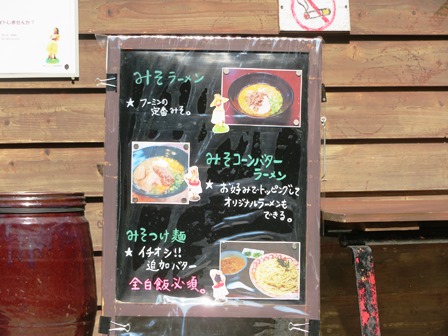 みそラーメン
★ フーミンの
定番みそ。
みそコーンバター
ラーメン
★ お好みでトッピングして
オリジナルラーメンも
できる。
みそつけ麺
★ イチオシ!!
追加バター
全白飯必須。